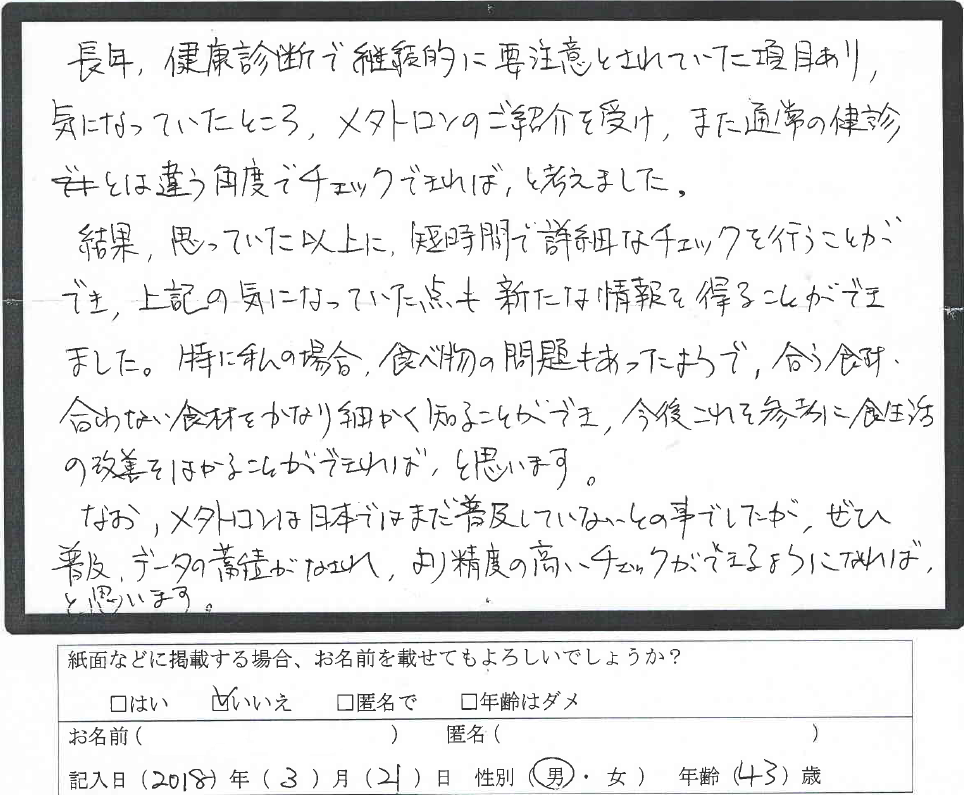 長年，健康診断で継続的に要注意とされていた項目あり，
気になっていたところ，メタトロンのご紹介を受け，また通常の健診
とは違う角度でチェックできれば，と考えました。
結果，思っていた以上に，短時間で詳細なチェックを行うことが
でき，上記の気になっていた点も新たな情報を得ることができ
ました。特に私の場合，食べ物の問題もあったようで，合う食材・
合わない食材をかなり細かく知ることができ，今後これを参考に食生活
の改善をはかることができれば，と思います。
なお，メタトロンは日本ではまだ普及していないとの事でしたが，ぜひ
普及，データの蓄積がなされ，より精度の高いチェックができるようになれば，
と思います。
紙面などに掲載する場合、お名前を載せてもよろしいでしょうか？
□はい ☑いいえ □匿名で □年齢はダメ
お名前（ ） 匿名（ ）
記入日（2018）年（3）月（21）日 性別（男・女） 年齢（43）歳